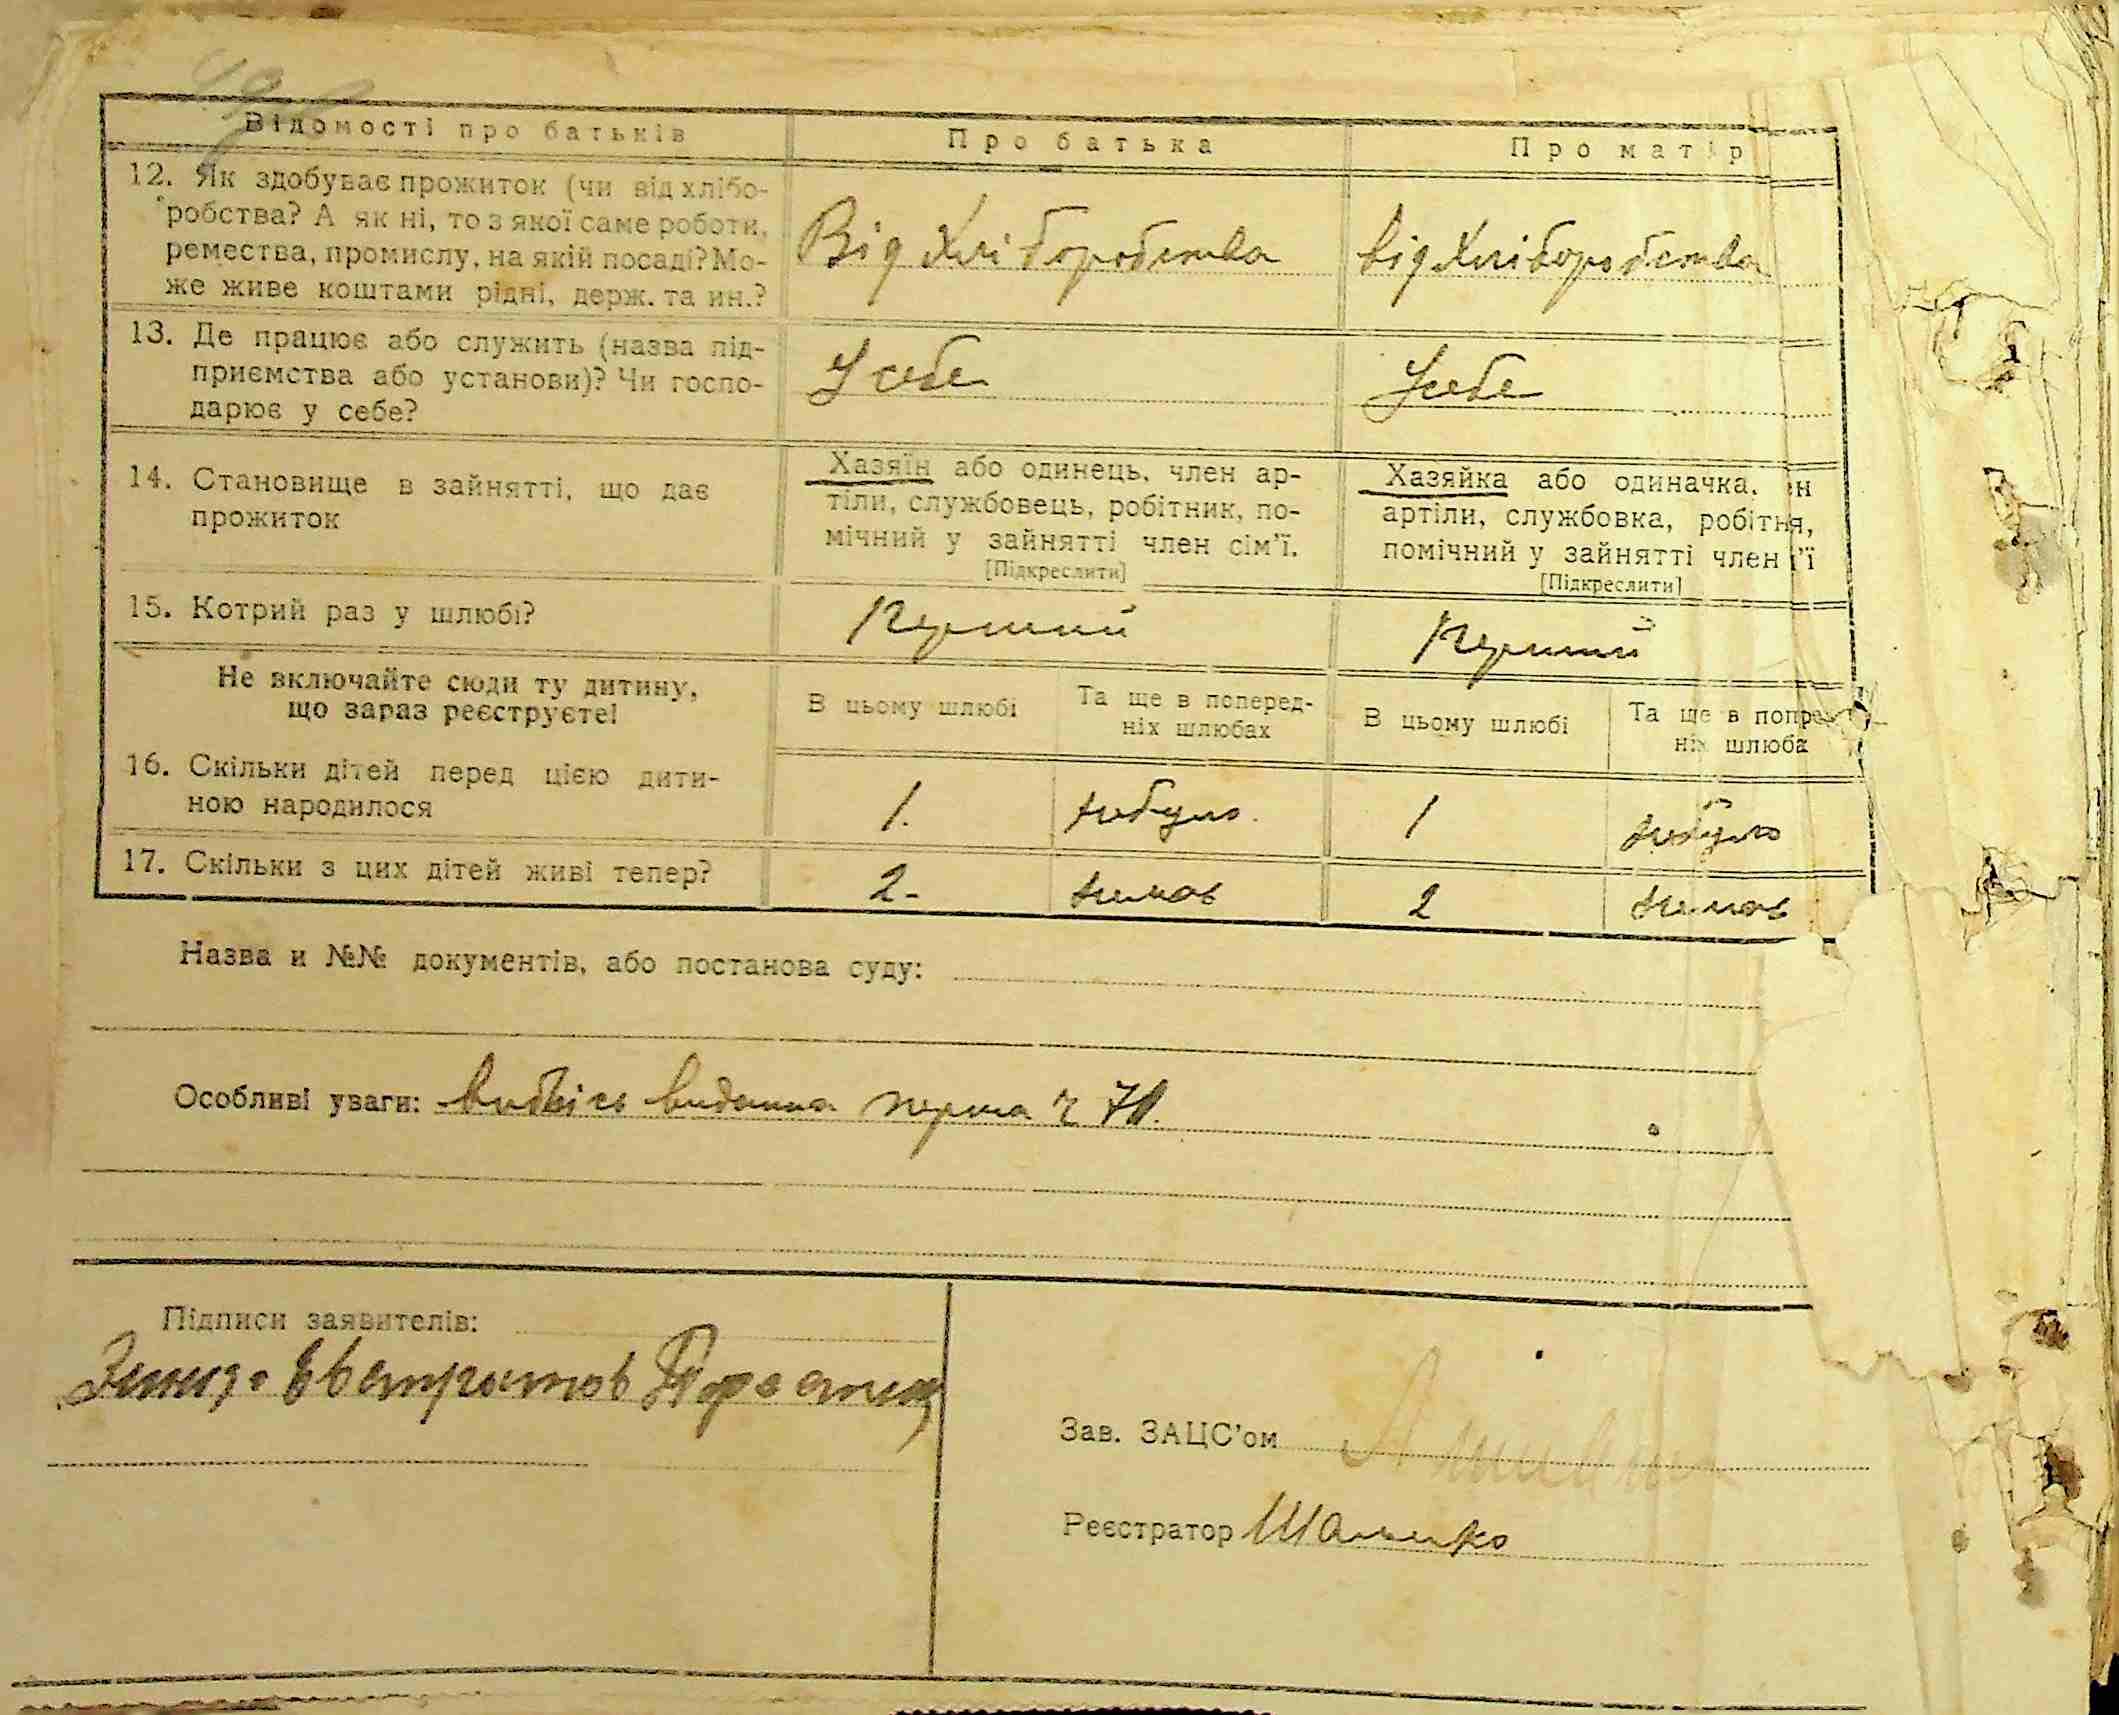 Відомості про батьків
Про батька
Про матір
12. Як здобуває прожиток (чи від хлібо-
робства? А як ні, то з якої саме роботи,
ремества, промислу, на якій посаді? Мо-
же живе коштами рідні, держ. та ин.?
Від Хліборобства
від Хліборобства
13. Де працює або служить (назва під-
приємства або установи)? Чи госпо-
дарює у себе?
У себе
У себе
14. Становище в зайнятті, що дає
прожиток
Хазяїн або одинець, член ар-
тіли, службовець, робітник, по-
мічний у зайнятті член сім'ї.
[Підкреслити]
Хазяйка або одиначка, ен
артіли, службовка, робітня,
помічний у зайнятті член і'ї
[Підкреслити]
15. Котрий раз у шлюбі?
Перший
Перший
Не включайте сюди ту дитину,
що зараз реєструєте!
В цьому шлюбі
Та ще в поперед-
ніх шлюбах
В цьому шлюбі
Та ще в попре
ніх шлюба
16. Скільки дітей перед цією дити-
ною народилося
1.
небуло.
1
небуло
17. Скільки з цих дітей живі тепер?
2-
нимає
2
нимає
Назва и №№ документів, або постанова суду:
Особливі уваги: видана перша
Підписи заявителів:
Евстратов
Зав. ЗАЦС'ом
Реєстратор